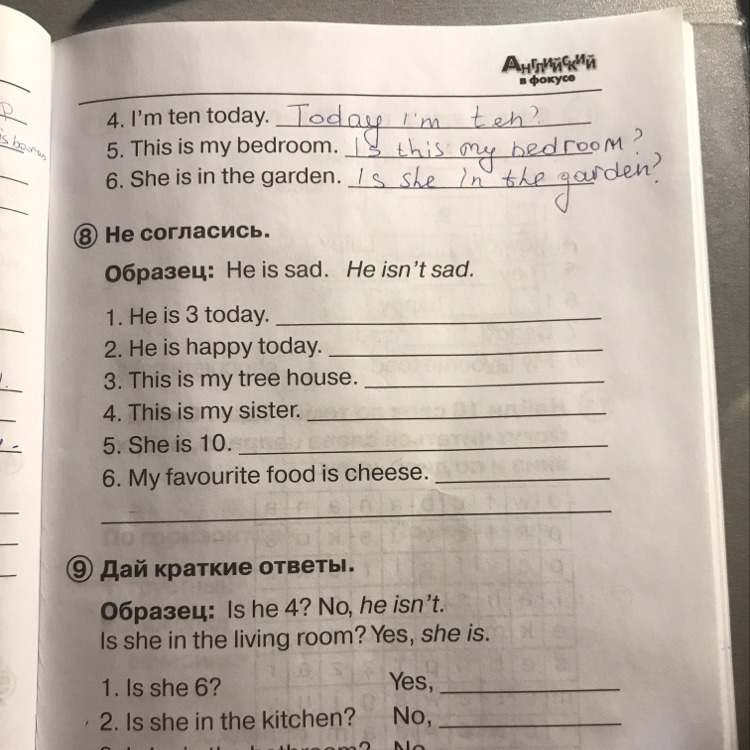 Английский
в фокусе
4. I'm ten today. Today I'm ten?
5. This is my bedroom. Is this my bedroom?
6. She is in the garden. Is she in the garden?
8 Не согласись.
Образец: He is sad. He isn't sad.
1. He is 3 today.
2. He is happy today.
3. This is my tree house.
4. This is my sister.
5. She is 10.
6. My favourite food is cheese.
9 Дай краткие ответы.
Образец: Is he 4? No, he isn't.
Is she in the living room? Yes, she is.
1. Is she 6? Yes,
2. Is she in the kitchen? No,